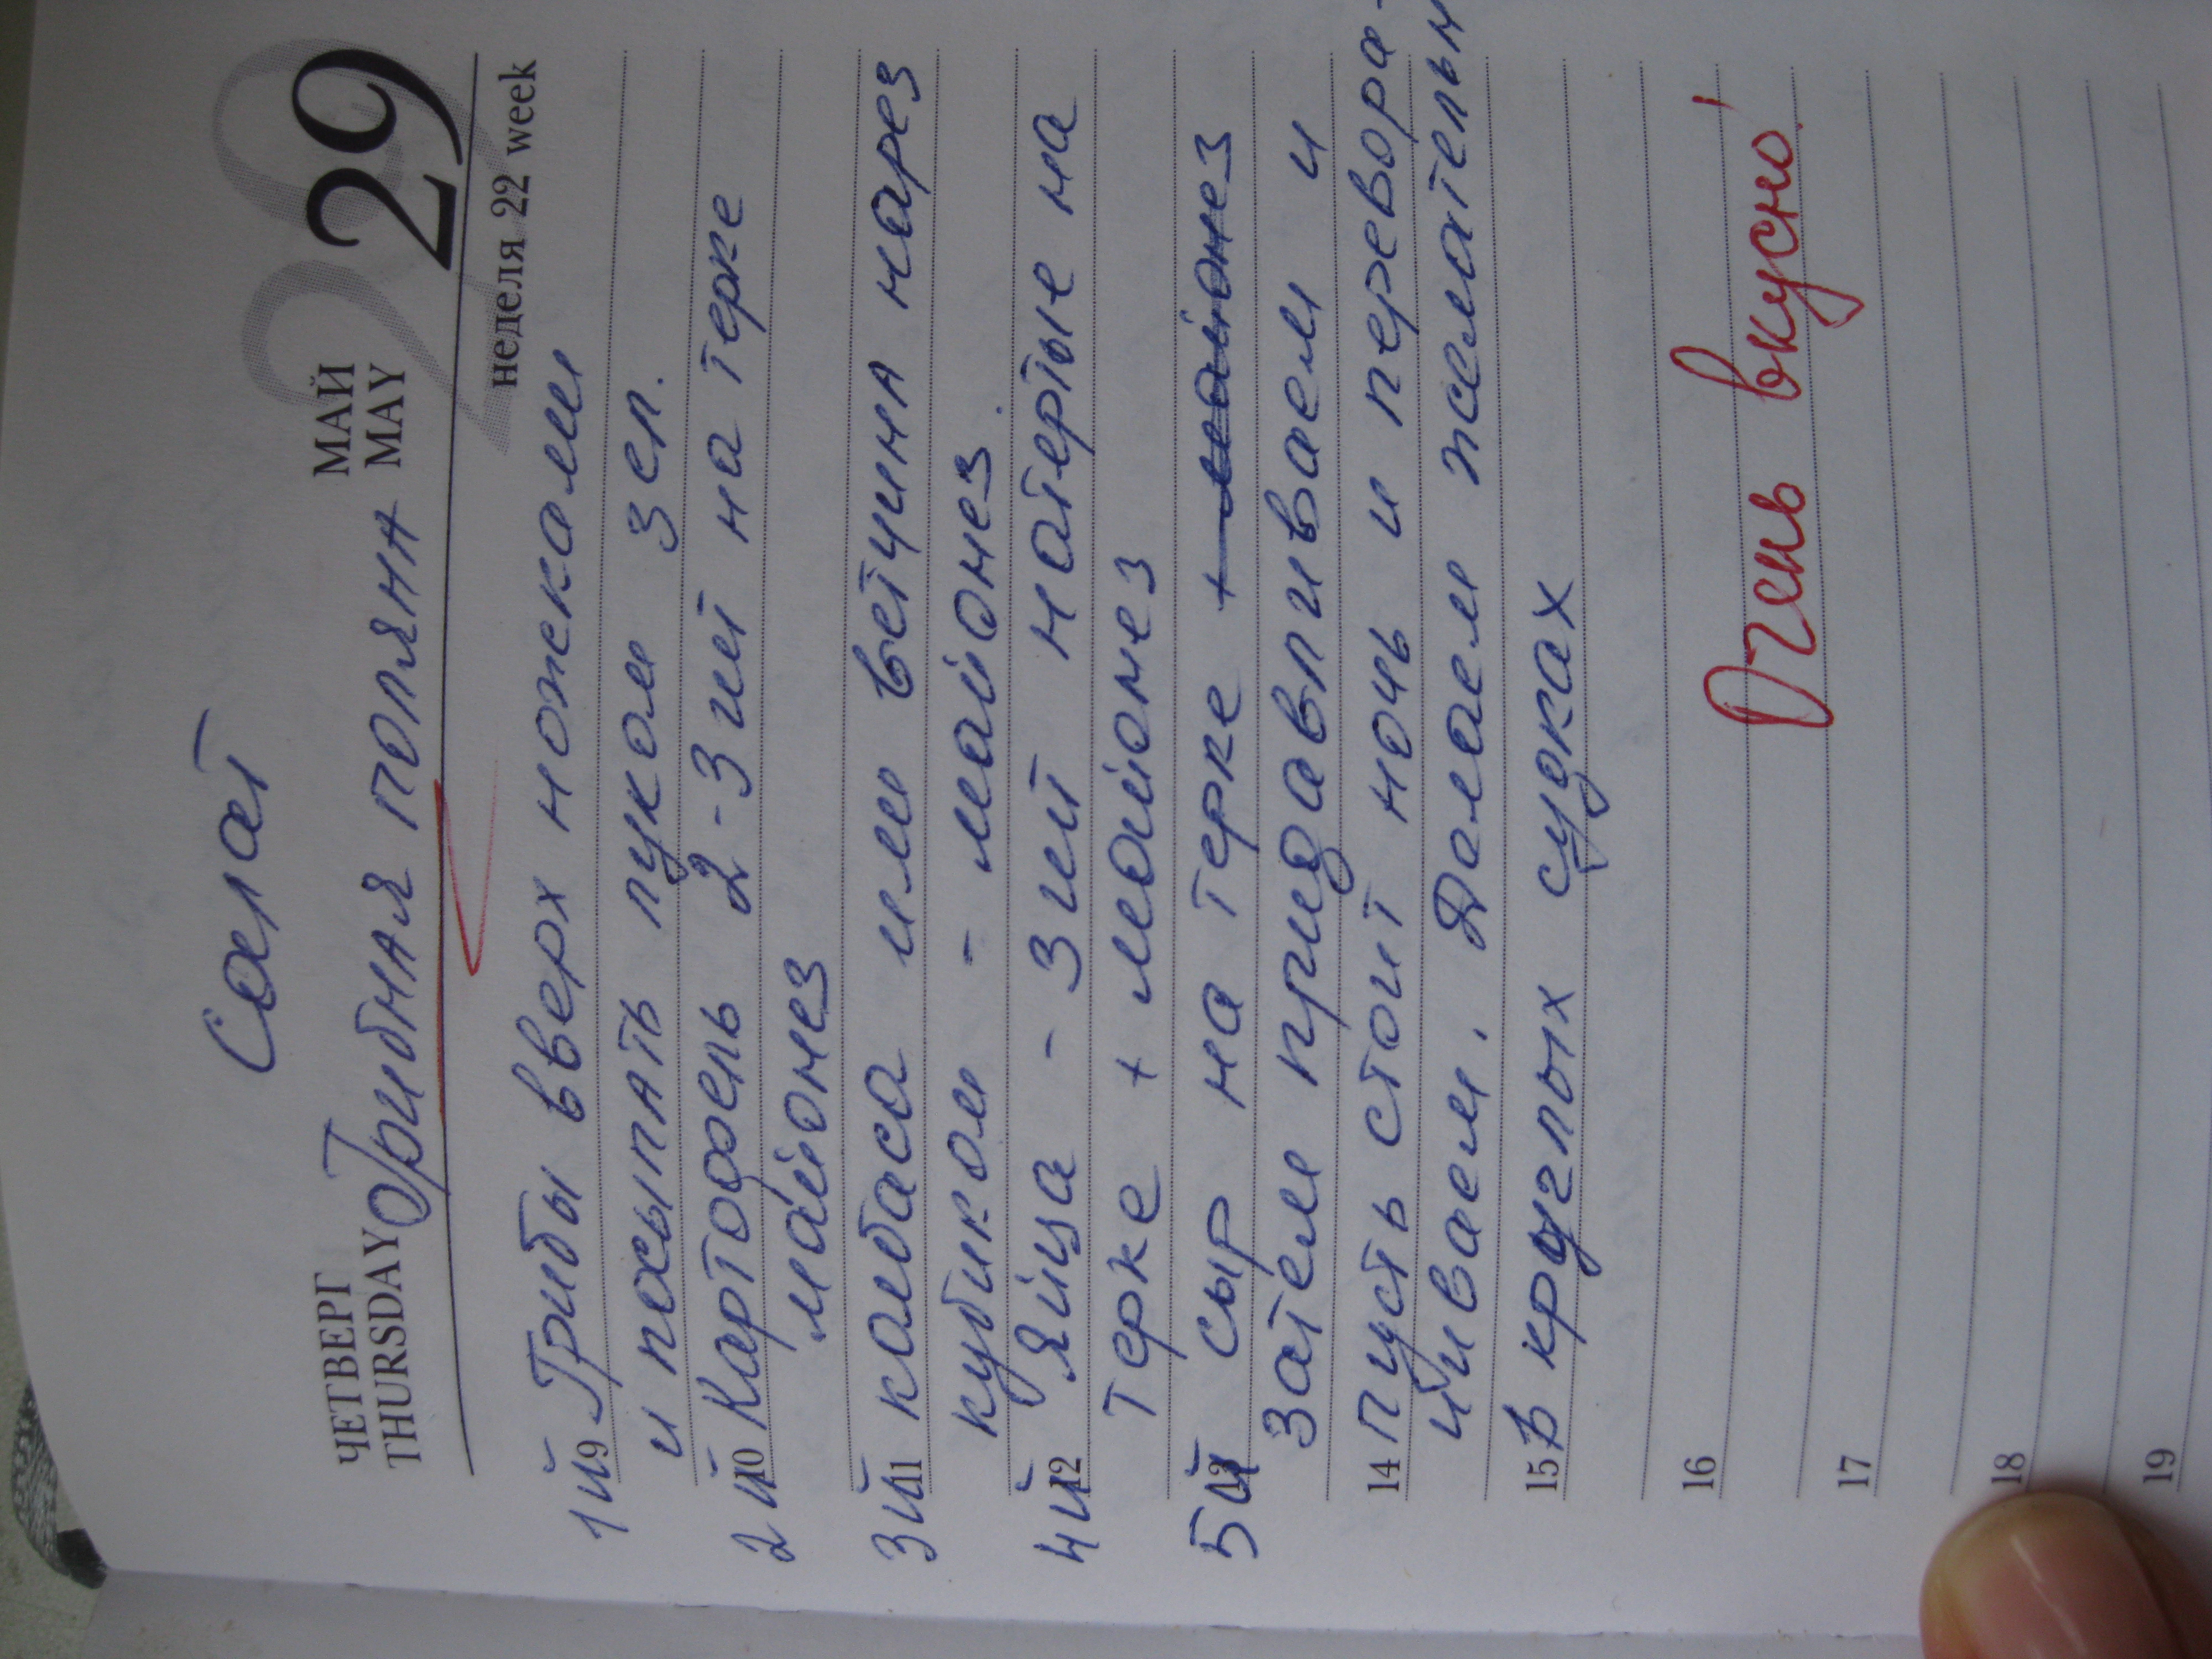 Салат
ЧЕТВЕРГ МАЙ 29
THURSDAY MAY
Грибная поляна
неделя 22 week
1й 9 Грибы вверх ножками
и посыпать луком зел.
2й 10 Картофель 2-3 шт на терке
майонез
3й 11 колбаса или ветчина нарез
кубиком - майонез.
4й 12 Яйца - 3 шт натертые на
терке + майонез
5й 13 сыр на терке + майонез
Затем придавливаем и
14 пусть стоит ночь и перевора-
чиваем. Делаем желательн
15 в круглых судках
16 Очень вкусно!
17
18
19